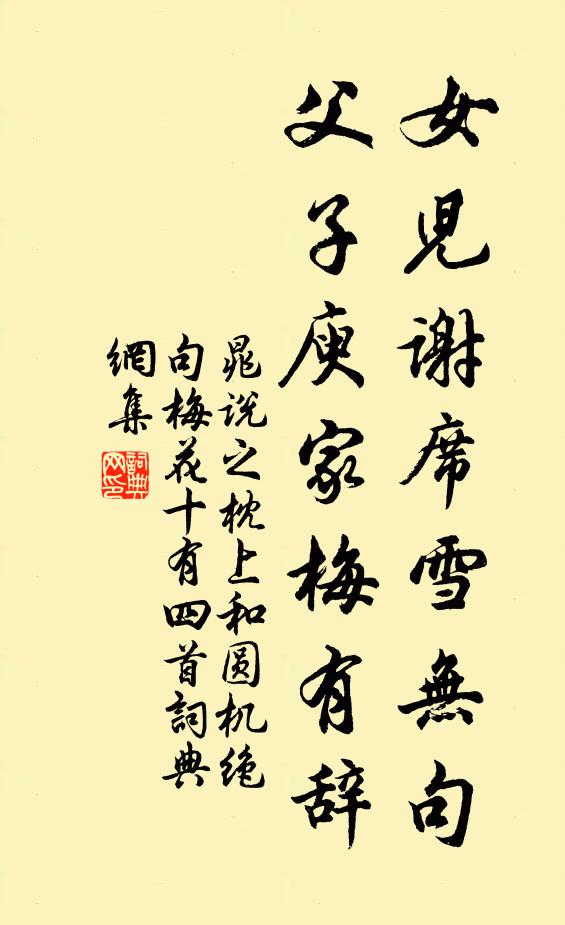 女児謝席雪無句
父子庾家梅有辞
晁说之枕上和圆机绝
句梅花十有四首詞典
網集
詞典
网印